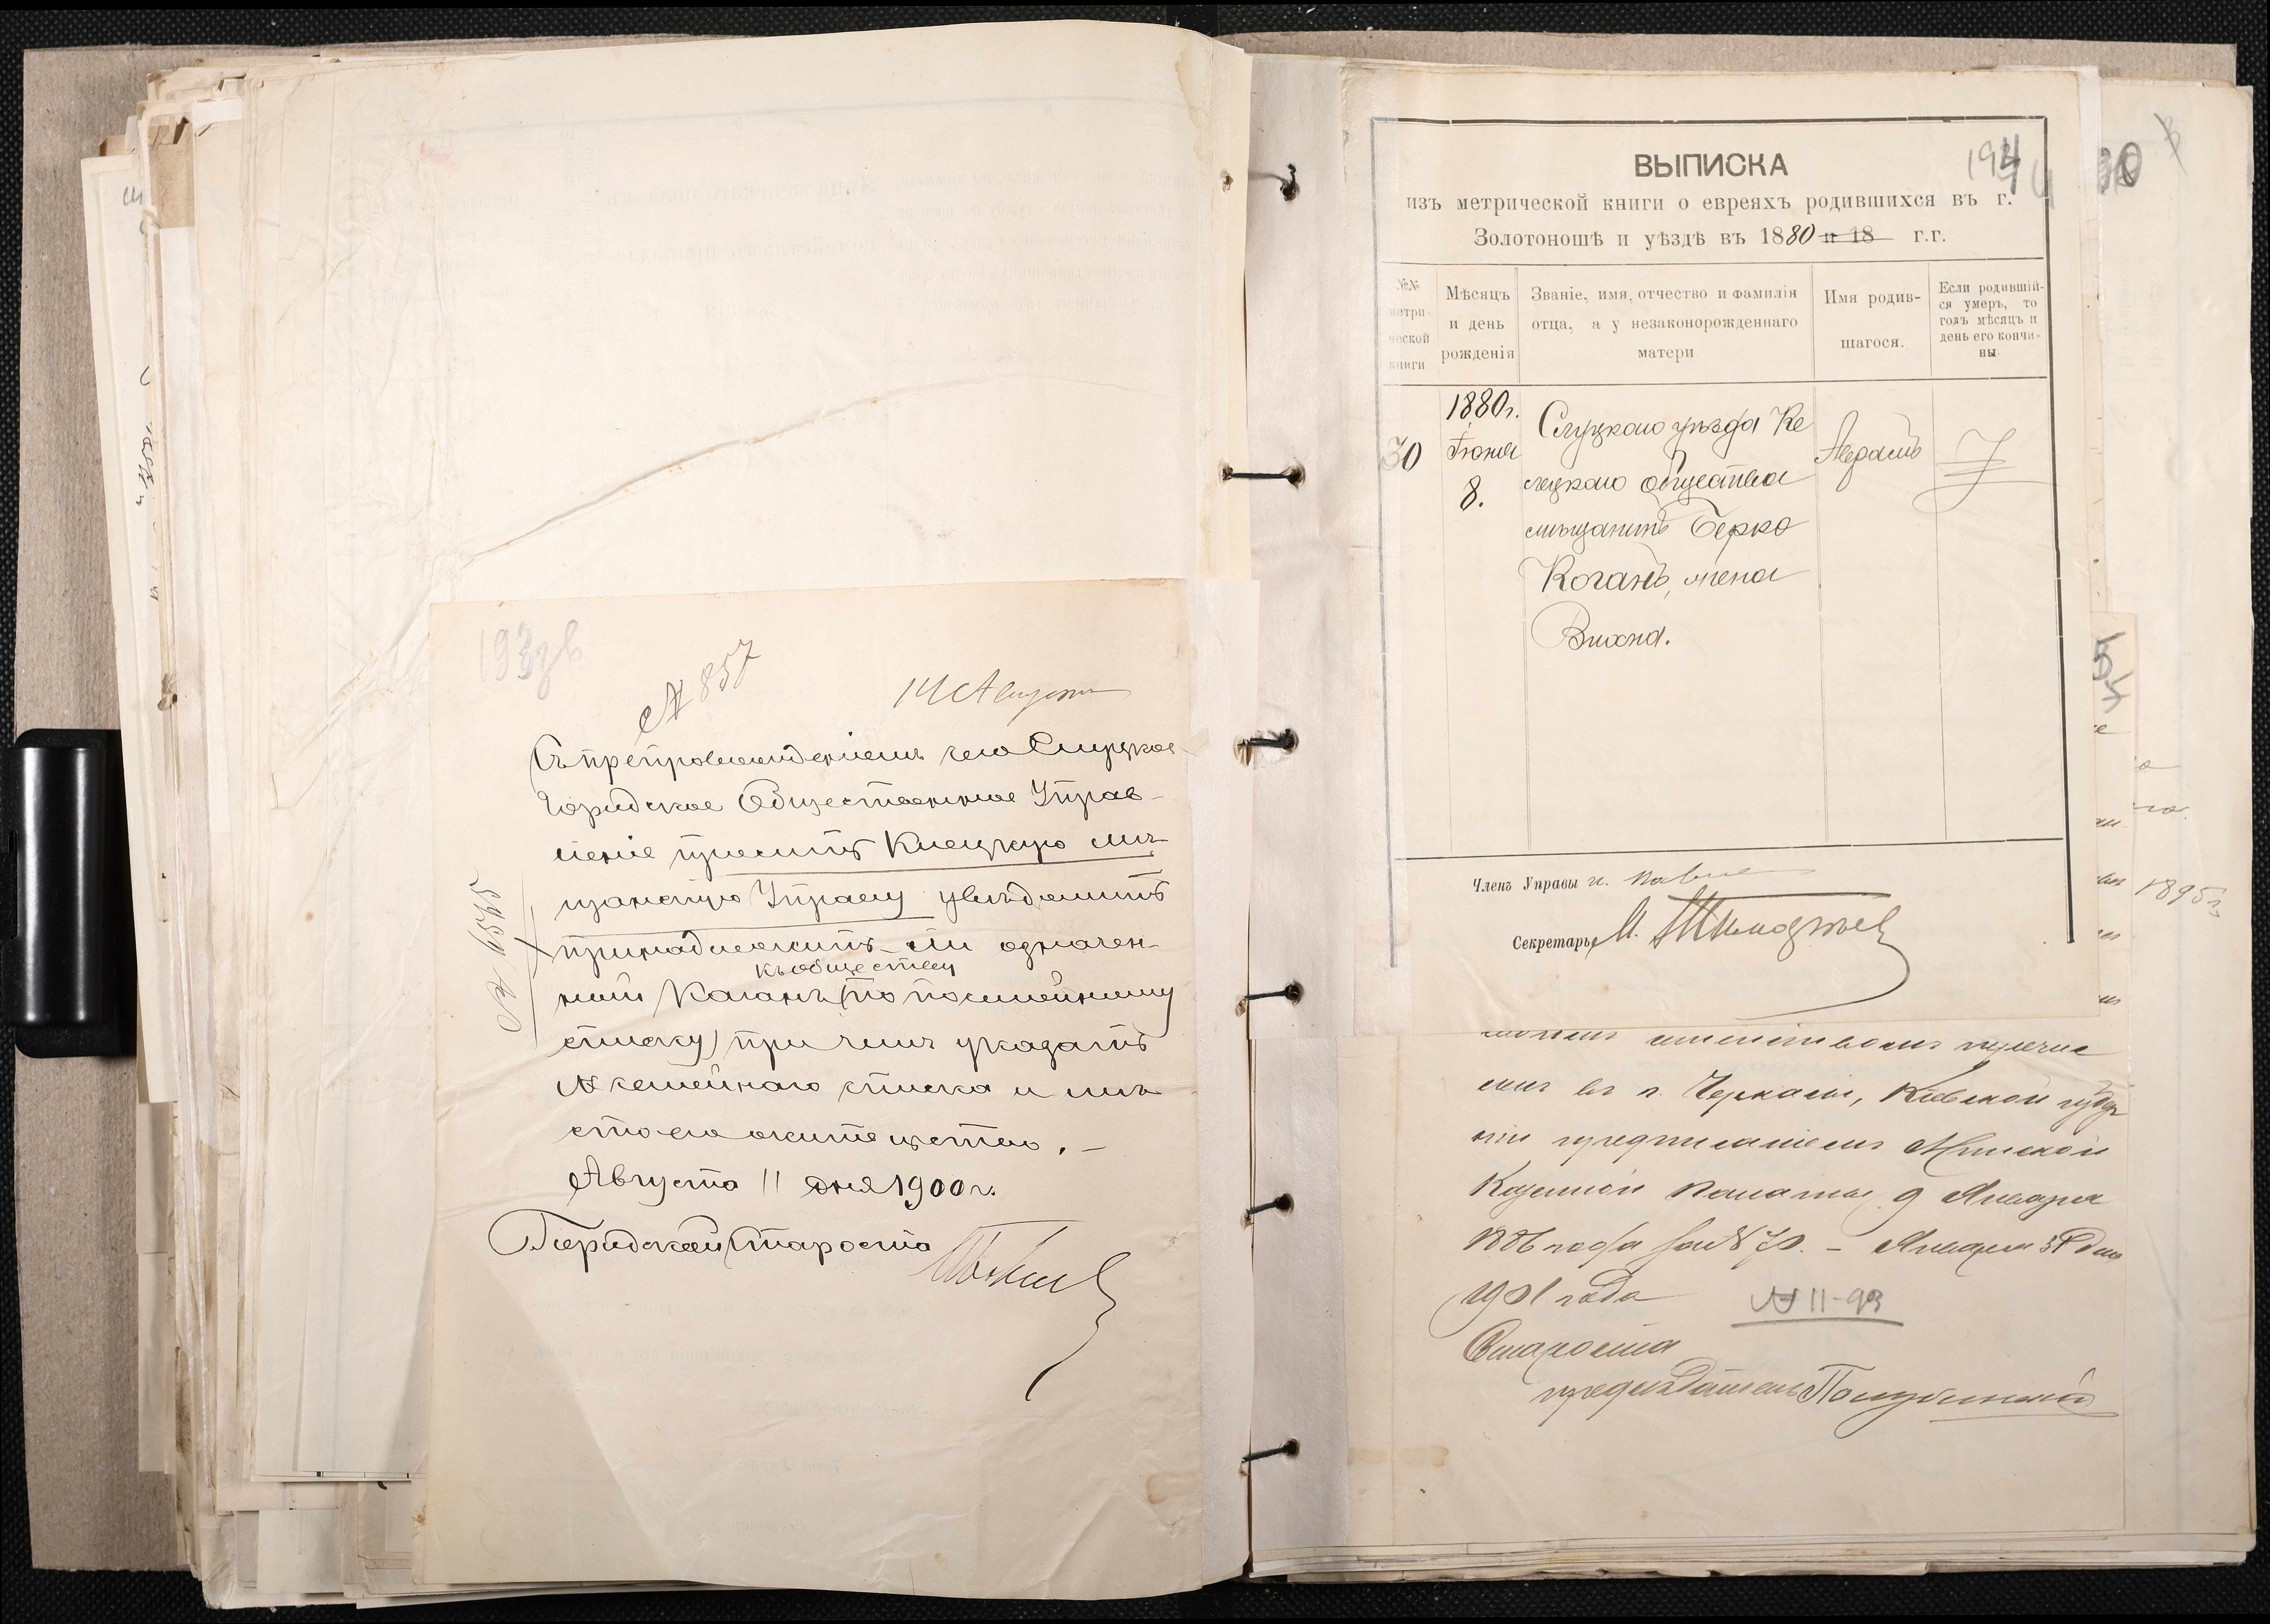 193зв
№ 857
14 Августа
Съ препровожденіемъ сего Слуцкое
Городское Общественное Управ-
леніе проситъ Клецкую мѣ-
щанскую Управу увѣдомить
принадлежитъ ли означен-
къ обществу
ный Каганъ (по посемейному
списку) при чемъ указать
№ семейнаго списка и мѣ-
сто его жительство. -
Августа 11 дня 1900 г.
Городской Староста
ВЫПИСКА
194
изъ метрической книги о евреяхъ родившихся въ г.
Золотоношѣ и уѣздѣ въ 1880 и 18 г.г.
№№ метри-ческой книги
Мѣсяцъ и день рожденія
Званіе, имя, отчество и фамилія отца, а у незаконорожденнаго матери
Имя родив-шагося.
Если родившій-ся умеръ, то годъ мѣсяцъ и день его кончи-ны
30
1880 г.
Іюня
8.
Слуцкаго уѣзда Кле
лецкаго общества
мѣщанинъ Берко
Коганъ, жена
Вихна.
Абрамъ
Членъ Управы
Секретарь
емъ въ г. Черкасы, Кіевской губер
ніи предписаніемъ Минской
Казенной Палаты 9 Января
1886 года за № 70. - Января 31 дня
1901 года
№ 11-93
Староста
предсѣдатель
1895 г.